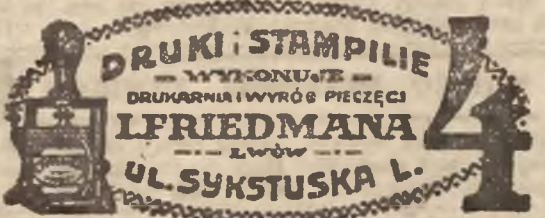 DRUKI i STAMPILIE
WYKONUJE
DRUKARNIA i WYRÓB PIECZĘCI
I.FRIEDMANA
LWÓW
UL. SYKSTUSKA L. 4